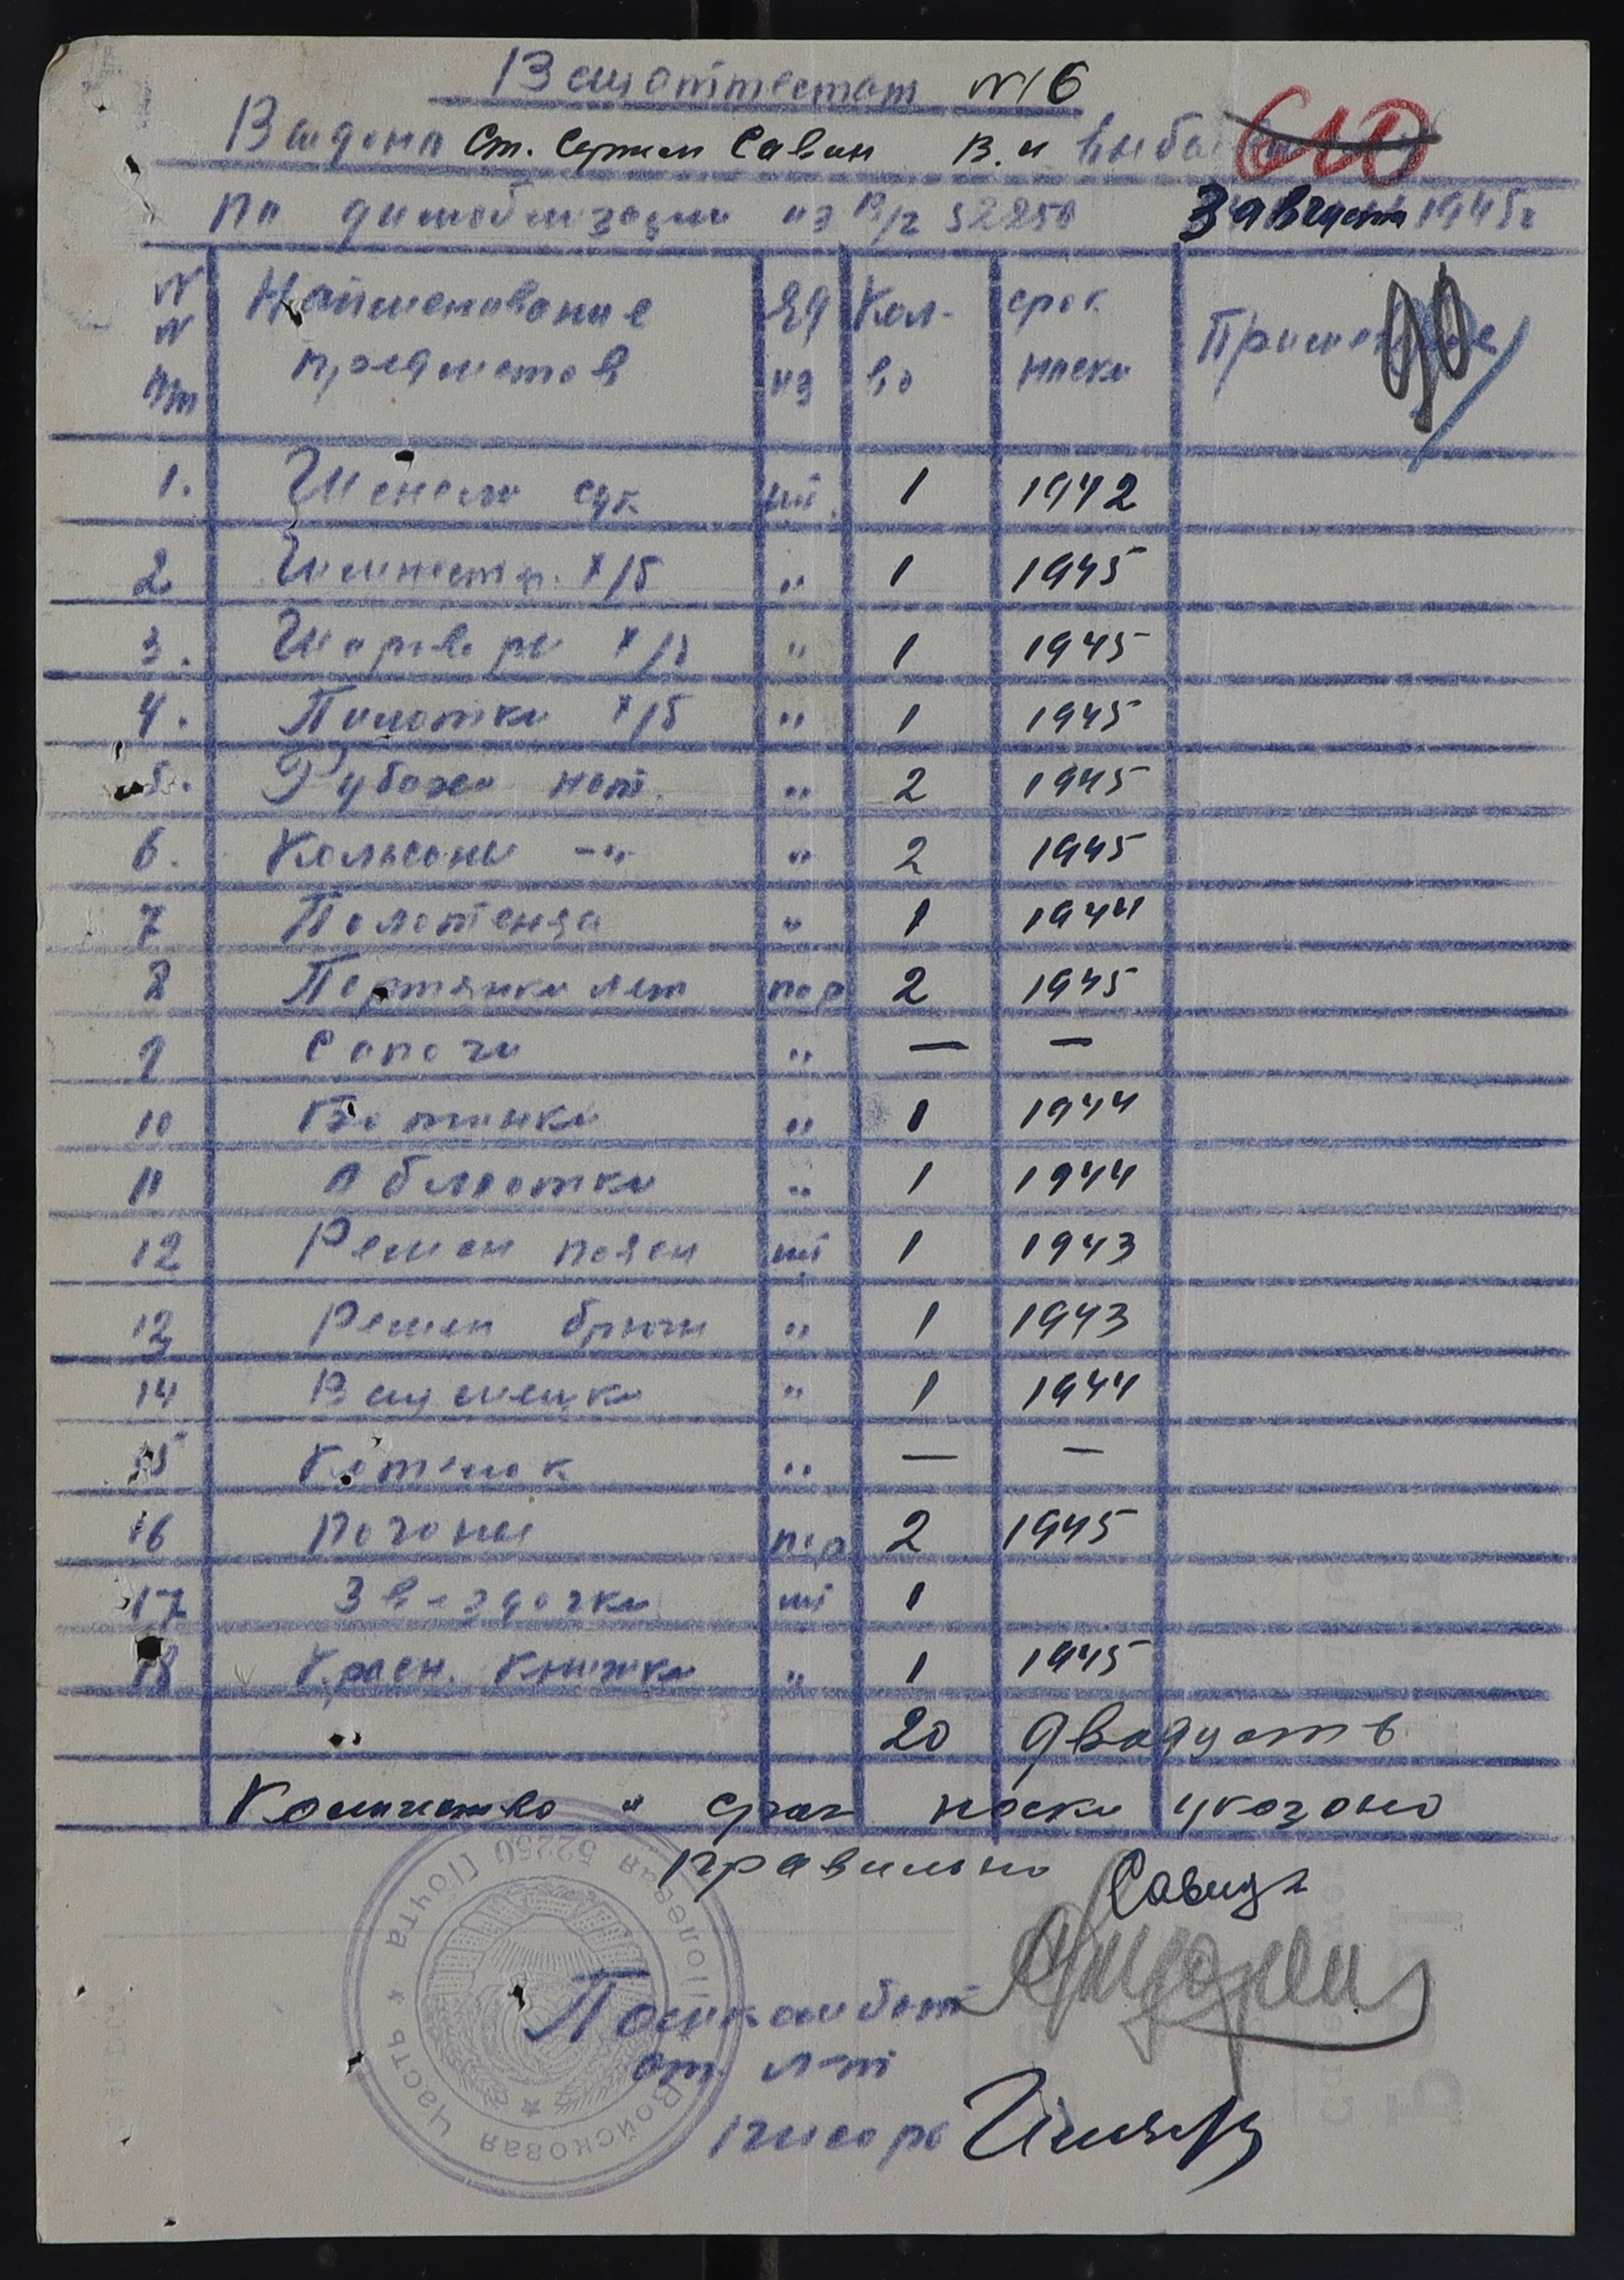 Вещаттестат №16
Выдано Ст. Сержан Савин В.И
по демобилизации из В/г 52250 3 августа 1945г
№ № пп Наименование предметов Ед из Кол-во срок носки Примечание 90
1. Шинель сук шт. 1 1942
2 Гимнастр. х/б " 1 1945
3. Шаровары х/б " 1 1945
4. Пилотка х/б " 1 1945
5. Рубаха нат. " 2 1945
6. Кальсоны -"- " 2 1945
7 Полотенца " 1 1944
8 Портянки лет пар 2 1945
9 Сапоги " — —
10 Ботинки " 1 1944
11 Обмотки " 1 1944
12 Ремен поясн шт 1 1943
13 Ремен брючн " 1 1943
14 Вещмешки " 1 1944
15 Котелок " — —
16 Погоны пар 2 1945
17 Звездочки шт 1
18 Красн. книжка " 1 1945
" 20 двадцать
Количество и срок носки указано
правильно
Войсковая Часть ★ Полевая 52250 Почта
Помкомбат
ст. л-т
Писарь